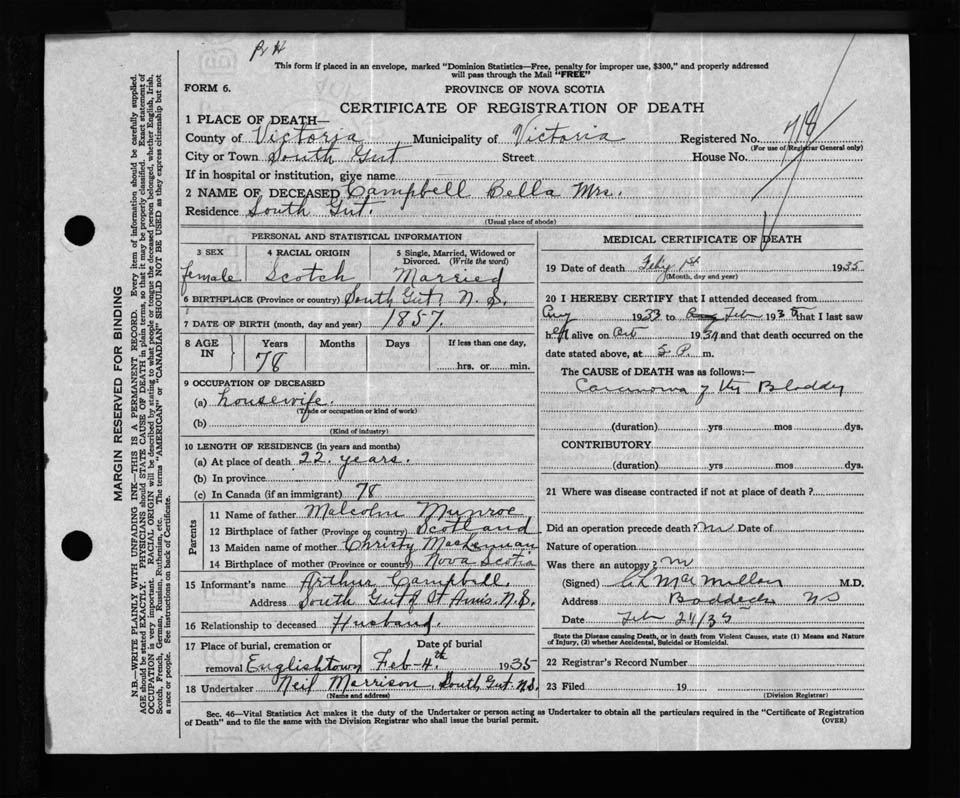 This form if placed in an envelope, marked "Dominion Statistics—Free, penalty for improper use, $300," and properly addressed
will pass through the Mail "FREE"
FORM 6.
PROVINCE OF NOVA SCOTIA
CERTIFICATE OF REGISTRATION OF DEATH
1 PLACE OF DEATH—
County of Victoria Municipality of Victoria Registered No. 718
(For use of Registrar General only)
City or Town South Gut Street House No.
If in hospital or institution, give name
2 NAME OF DECEASED Campbell Bella Mrs.
Residence South Gut.
(Usual place of abode)
PERSONAL AND STATISTICAL INFORMATION
3 SEX 4 RACIAL ORIGIN 5 Single, Married, Widowed or Divorced. (Write the word)
female Scotch Married
6 BIRTHPLACE (Province or country) South Gut, N.S.
7 DATE OF BIRTH (month, day and year) 1857.
8 AGE IN Years Months Days If less than one day,
78 hrs. or min.
9 OCCUPATION OF DECEASED
(a) housewife.
(Trade or occupation or kind of work)
(b)
(Kind of industry)
10 LENGTH OF RESIDENCE (in years and months)
(a) At place of death 22 years.
(b) In province
(c) In Canada (if an immigrant) 78
Parents
11 Name of father Malcolm Munroe
12 Birthplace of father (Province or country) Scotland
13 Maiden name of mother Christy MacLennan
14 Birthplace of mother (Province or country) Nova Scotia
15 Informant's name Arthur Campbell.
Address South Gut St Anns. N.S.
16 Relationship to deceased Husband.
17 Place of burial, cremation or removal Date of burial
Englishtown Feb-4th 1935
18 Undertaker Neil Morrison, South Gut N.S.
(Name and address)
MEDICAL CERTIFICATE OF DEATH
19 Date of death Feb'y 1st 1935
(Month, day and year)
20 I HEREBY CERTIFY that I attended deceased from
Aug 1933 to Feb 193 that I last saw
h er alive on Oct 1934 and that death occurred on the
date stated above, at 5 P. m.
The CAUSE of DEATH was as follows:—
Carcinoma of the Bladder
(duration) yrs mos dys.
CONTRIBUTORY
(duration) yrs mos dys.
21 Where was disease contracted if not at place of death?
Did an operation precede death? no Date of
Nature of operation
Was there an autopsy? no
(Signed) C L MacMillan M.D.
Address Baddeck NS
Date Feb 21/35
State the Disease causing Death, or in death from Violent Causes, state (1) Means and Nature
of Injury, (2) whether Accidental, Suicidal or Homicidal.
22 Registrar's Record Number
23 Filed 19
(Division Registrar)
Sec. 46—Vital Statistics Act makes it the duty of the Undertaker or person acting as Undertaker to obtain all the particulars required in the "Certificate of Registration
of Death" and to file the same with the Division Registrar who shall issue the burial permit.
(OVER)
MARGIN RESERVED FOR BINDING
N.B.—WRITE PLAINLY WITH UNFADING INK—THIS IS A PERMANENT RECORD. Every item of information should be carefully supplied.
AGE should be stated EXACTLY. PHYSICIANS should STATE CAUSE OF DEATH in plain terms, so that it may be properly classified. Exact statement of
OCCUPATION is very important. RACIAL ORIGIN will be described by stating to what people or tongue the deceased person belonged, whether English, Irish,
Scotch, French, German, Russian, Ruthenian, etc. The terms "AMERICAN" or "CANADIAN" SHOULD NOT BE USED as they express citizenship but not
a race or people. See instructions on back of Certificate.